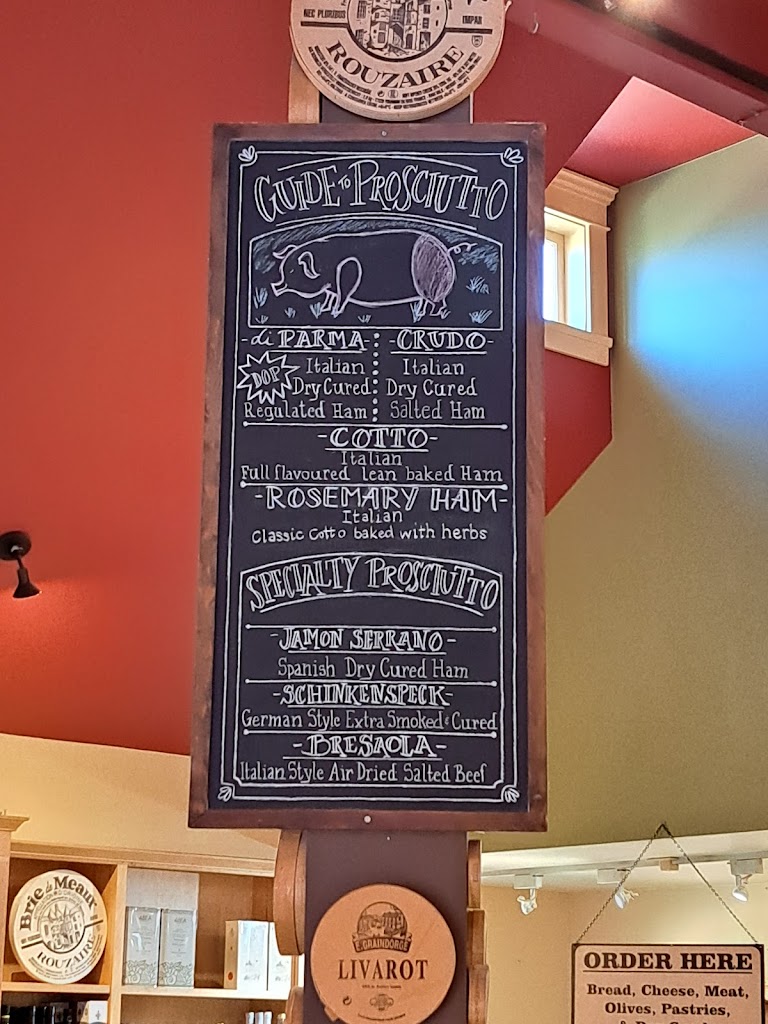 NEC PLURIBUS IMPAR
ROUZAIRE
GUIDE TO PROSCIUTTO
- di PARMA -
DOP
Italian
Dry Cured
Regulated Ham
- CRUDO -
Italian
Dry Cured
Salted Ham
- COTTO -
Italian
Full flavoured lean baked Ham
- ROSEMARY HAM -
Italian
Classic Cotto baked with herbs
SPECIALTY PROSCIUTTO
- JAMON SERRANO -
Spanish Dry Cured Ham
- SCHINKENSPECK -
German Style Extra Smoked & Cured
- BRESAOLA -
Italian Style Air Dried Salted Beef
Brie de Meaux
ROUZAIRE
E. GRAINDORGE
LIVAROT
ORDER HERE
Bread, Cheese, Meat,
Olives, Pastries,